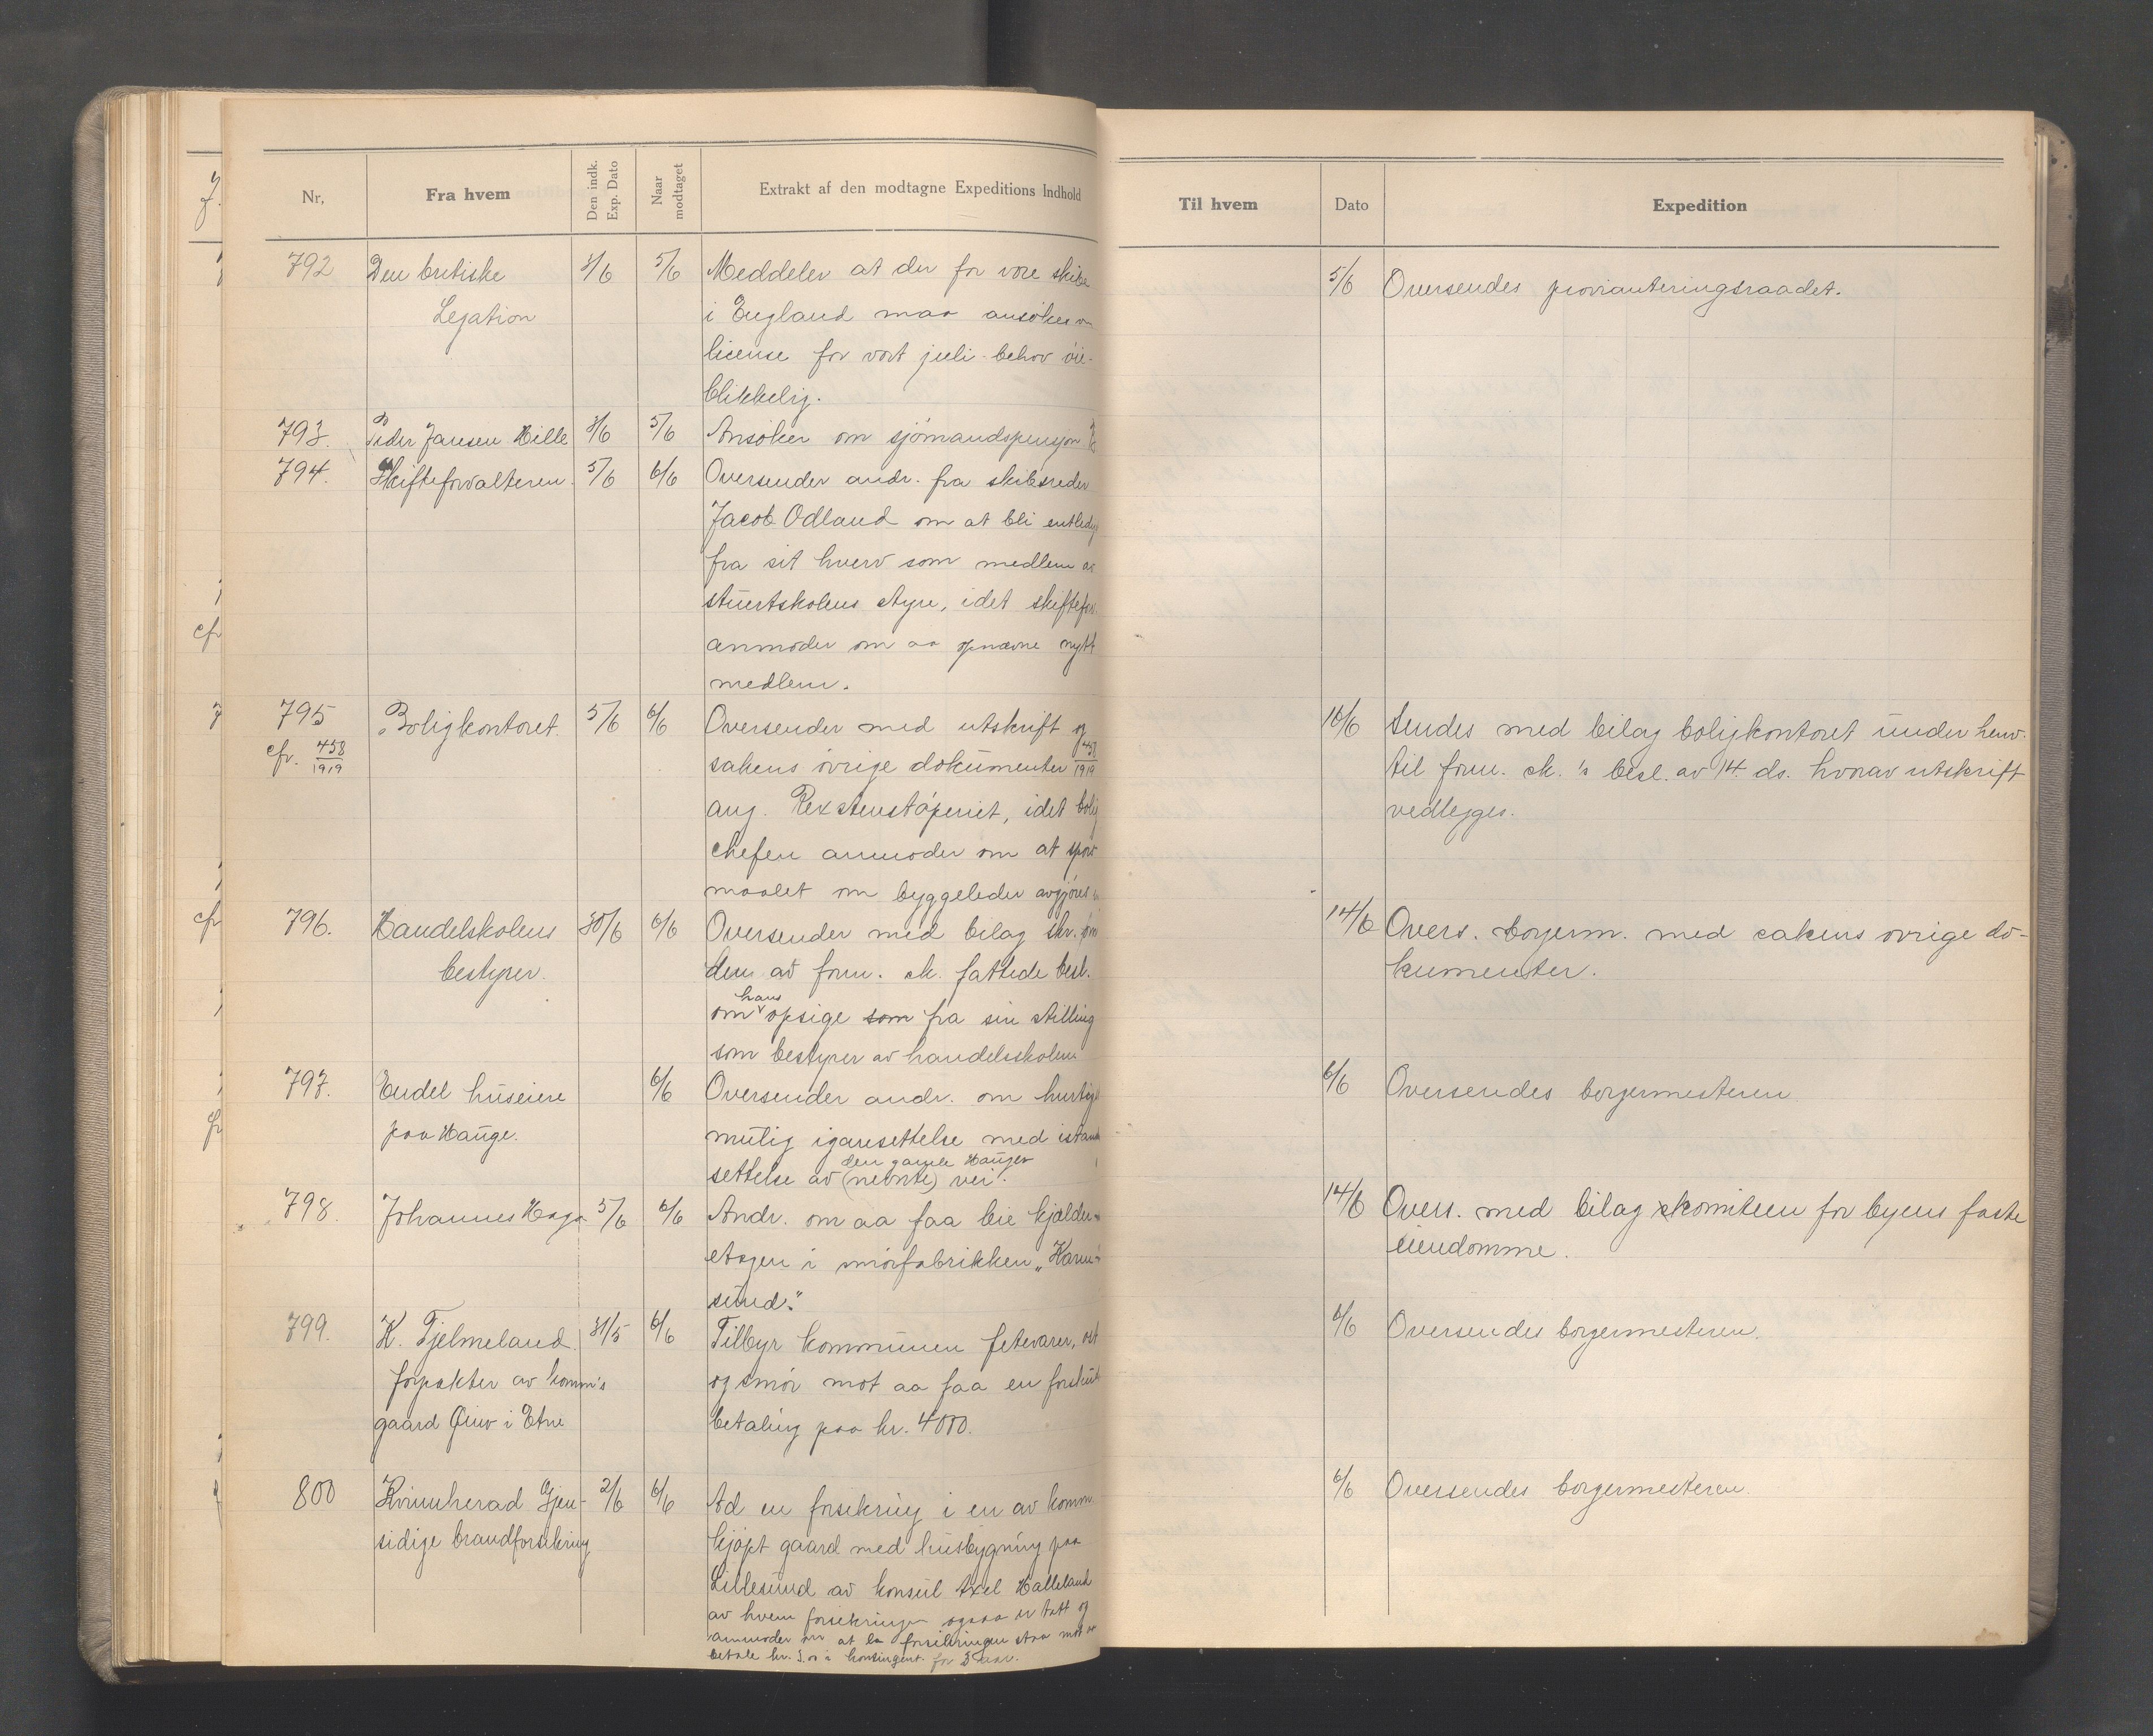 Nr,
Fra hvem
Den indk.
Exp. Dato
Naar
modtaget
Extrakt af den modtagne Expeditions Indhold
792 Den britiske 3/6 5/6 Meddeler at der for vore skibe
Legation i England maa ansökes om
license for vort juli-behov öie-
blikkelig.
793. Peder Jansen Hille 3/6 5/6 Ansöker om sjömandspensjon
794. Skifteforvalteren. 5/6 6/6 Oversender andr. fra skibsreder
Jacob Odland om at bli entledig
fra sit hverv som medlem av
stuertskolens styre, idet skiftefor.
anmoder om aa opnævne nytt
medlem.
795 Boligkontoret. 5/6 6/6 Oversender med utskrift og
cfr. 458/1919 sakens övrige dokumenter 458/1919
ang. Rex stenstöperiet, idet bolig
chefen anmoder om at spörs
maalet om byggeleder avgjöres
796. Handelskolens 30/6 6/6 Oversender med bilag skr. om
bestyrer. den av form. sk. fattede besl.
om hans opsige som fra sin stilling
som bestyrer av handelsskolen
797. Endel huseiere 6/6 Oversender andr. om hurtigst
paa Hauge. mulig igansettelse med istand
den gamle Hauge
settelse av (nevnte) vei.
798 Johannes Haga 5/6 6/6 Andr. om aa faa leie kjelder-
etagen i smörfabrikken „Karm-
sund."
799. K. Tjelmeland. 31/5 6/6 Tilbyr kommunen fetevarer, ost
forpakter av komm's og smör mot aa faa en forskud
gaard i Etne betaling paa kr. 4000.
800 Kvinnherad Gjen- 2/6 6/6 Ad en forsikring i en av komm.
sidige brandforsikring kjöpt gaard med husbygning paa
Lillesund av konsul Axel Halleland
av hvem forsikringen ogsaa er tatt og
anmoder om at la forsikringen staa mot at
betale kr. i kontingent for 3 aar.
Til hvem
Dato
Expedition
5/6 Oversendes provianteringsraadet.
16/6 Sendes med bilag boligkontoret under henv.
til form. sk.'s besl. av 14. ds. hvorav utskrift
vedlegges.
14/6 Overs. borgerm. med sakens övrige do-
kumenter.
6/6 Oversendes borgermesteren.
14/6 Overs. med bilag komiteen for byens faste
eiendomme.
6/6 Oversendes borgermesteren.
6/6 Oversendes borgermesteren.